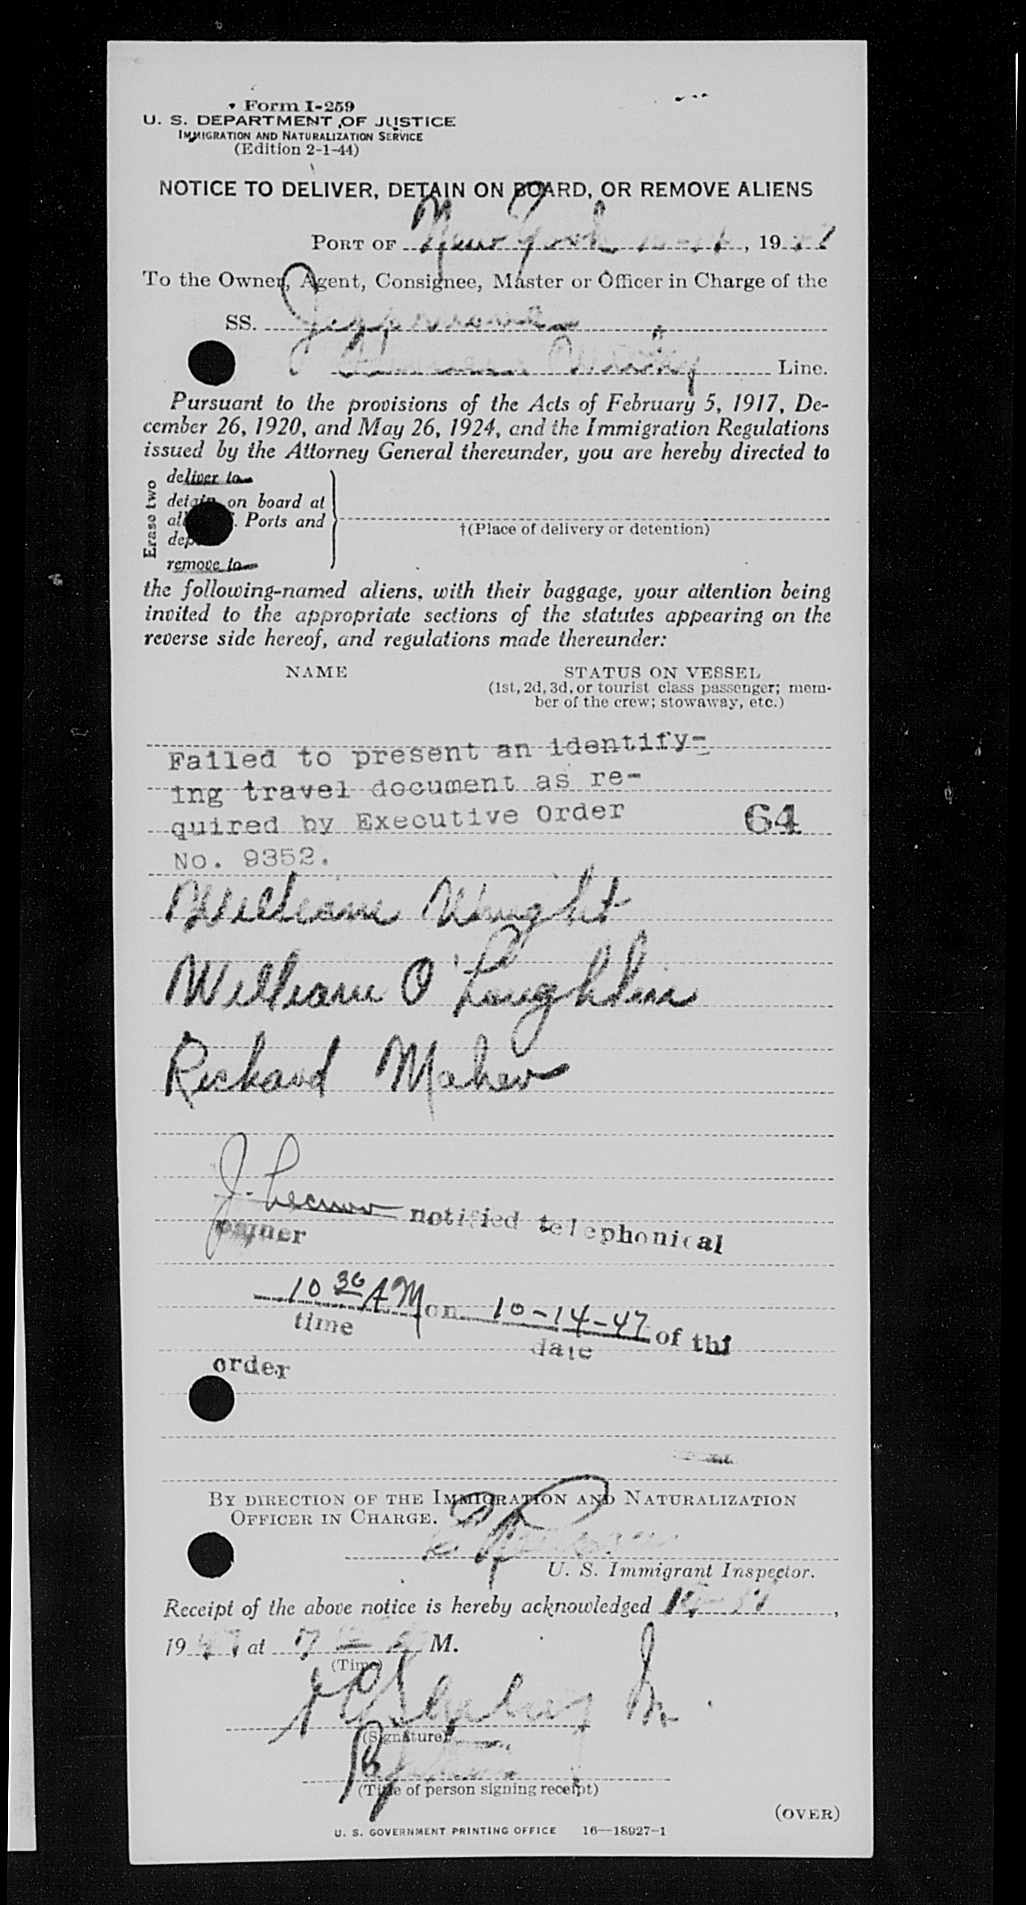 Form I-259
U. S. DEPARTMENT OF JUSTICE
IMMIGRATION AND NATURALIZATION SERVICE
(Edition 2-1-44)
NOTICE TO DELIVER, DETAIN ON BOARD, OR REMOVE ALIENS
PORT OF New York, 19
To the Owner, Agent, Consignee, Master or Officer in Charge of the
SS.
Line.
Pursuant to the provisions of the Acts of February 5, 1917, De-
cember 26, 1920, and May 26, 1924, and the Immigration Regulations
issued by the Attorney General thereunder, you are hereby directed to
Erase two
deliver to
detain on board at
Ports and
remove to
†(Place of delivery or detention)
the following-named aliens, with their baggage, your attention being
invited to the appropriate sections of the statutes appearing on the
reverse side hereof, and regulations made thereunder:
NAME STATUS ON VESSEL
(1st, 2d, 3d, or tourist class passenger; mem-
ber of the crew; stowaway, etc.)
Failed to present an identify-
ing travel document as re-
quired by Executive Order 64
No. 9352.
William Wright
William O'Loughlin
Richard Maher
J. notified telephonical
10 30 AM on 10-14-47 of thi
time date
order
BY DIRECTION OF THE IMMIGRATION AND NATURALIZATION
OFFICER IN CHARGE.
U. S. Immigrant Inspector.
Receipt of the above notice is hereby acknowledged
1947 at 7 M.
(Time)
Jr.
(Signature)
(Title of person signing receipt)
(OVER)
U. S. GOVERNMENT PRINTING OFFICE 16—18927-1